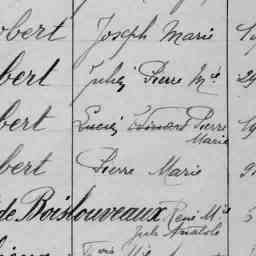 obert Joseph Marie
bert Julien Pierre Mie 29
bert Lucien Edouard Pierre 19
Marie
bert Pierre Marie
de Boislouveaux René Mie 5
Jule Anatole